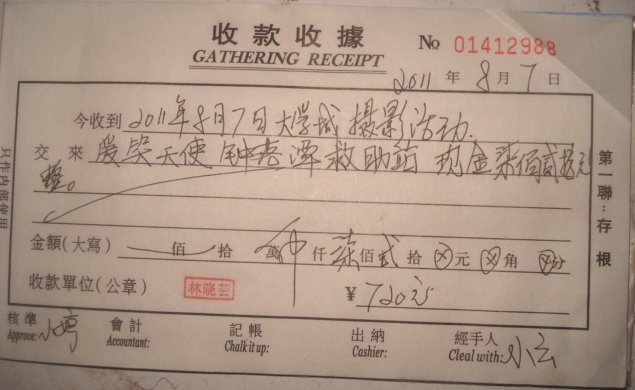 收款收據
GATHERING RECEIPT
No 01412988
2011 年 8 月 7 日
今收到 2011年8月7日大学城 摄影活动.
交來 天使 救助站 现金柒佰贰拾元
整。
金額(大寫) 佰 拾 萬 仟 柒佰 贰 拾 元 角 分
收款單位(公章) 林晓芸
¥ 720元
核準 Approve: 小婷
會計 Accountant:
記帳 Chalk it up:
出納 Cashier:
經手人 Cleal with: 小云
第一聯:存根
只作內部使用